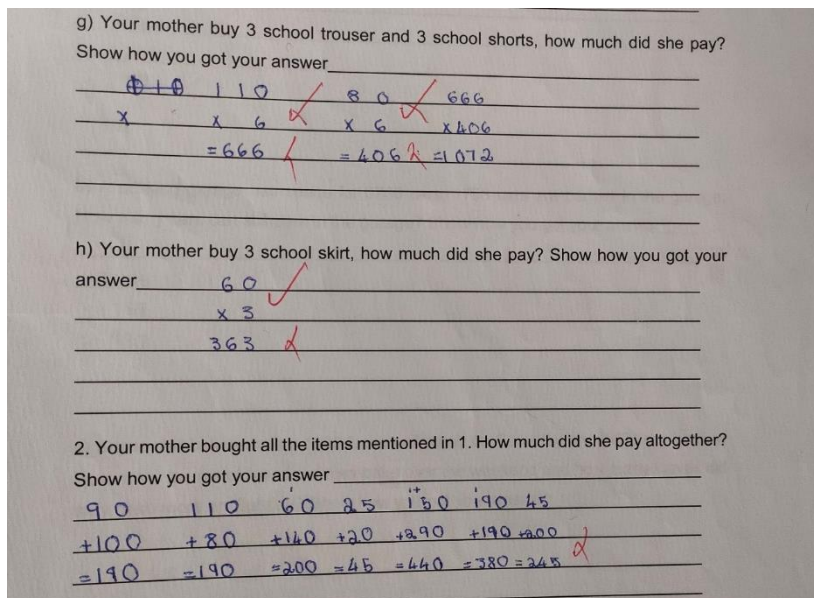 g) Your mother buy 3 school trouser and 3 school shorts, how much did she pay?
Show how you got your answer
110 80 666
x x 6 x 6 x406
=666 =406 =1072
h) Your mother buy 3 school skirt, how much did she pay? Show how you got your
answer 60
x 3
363
2. Your mother bought all the items mentioned in 1. How much did she pay altogether?
Show how you got your answer
90 110 60 25 150 190 45
+100 +80 +140 +20 +290 +190 +200
=190 =190 =200 =45 =440 =380 =245